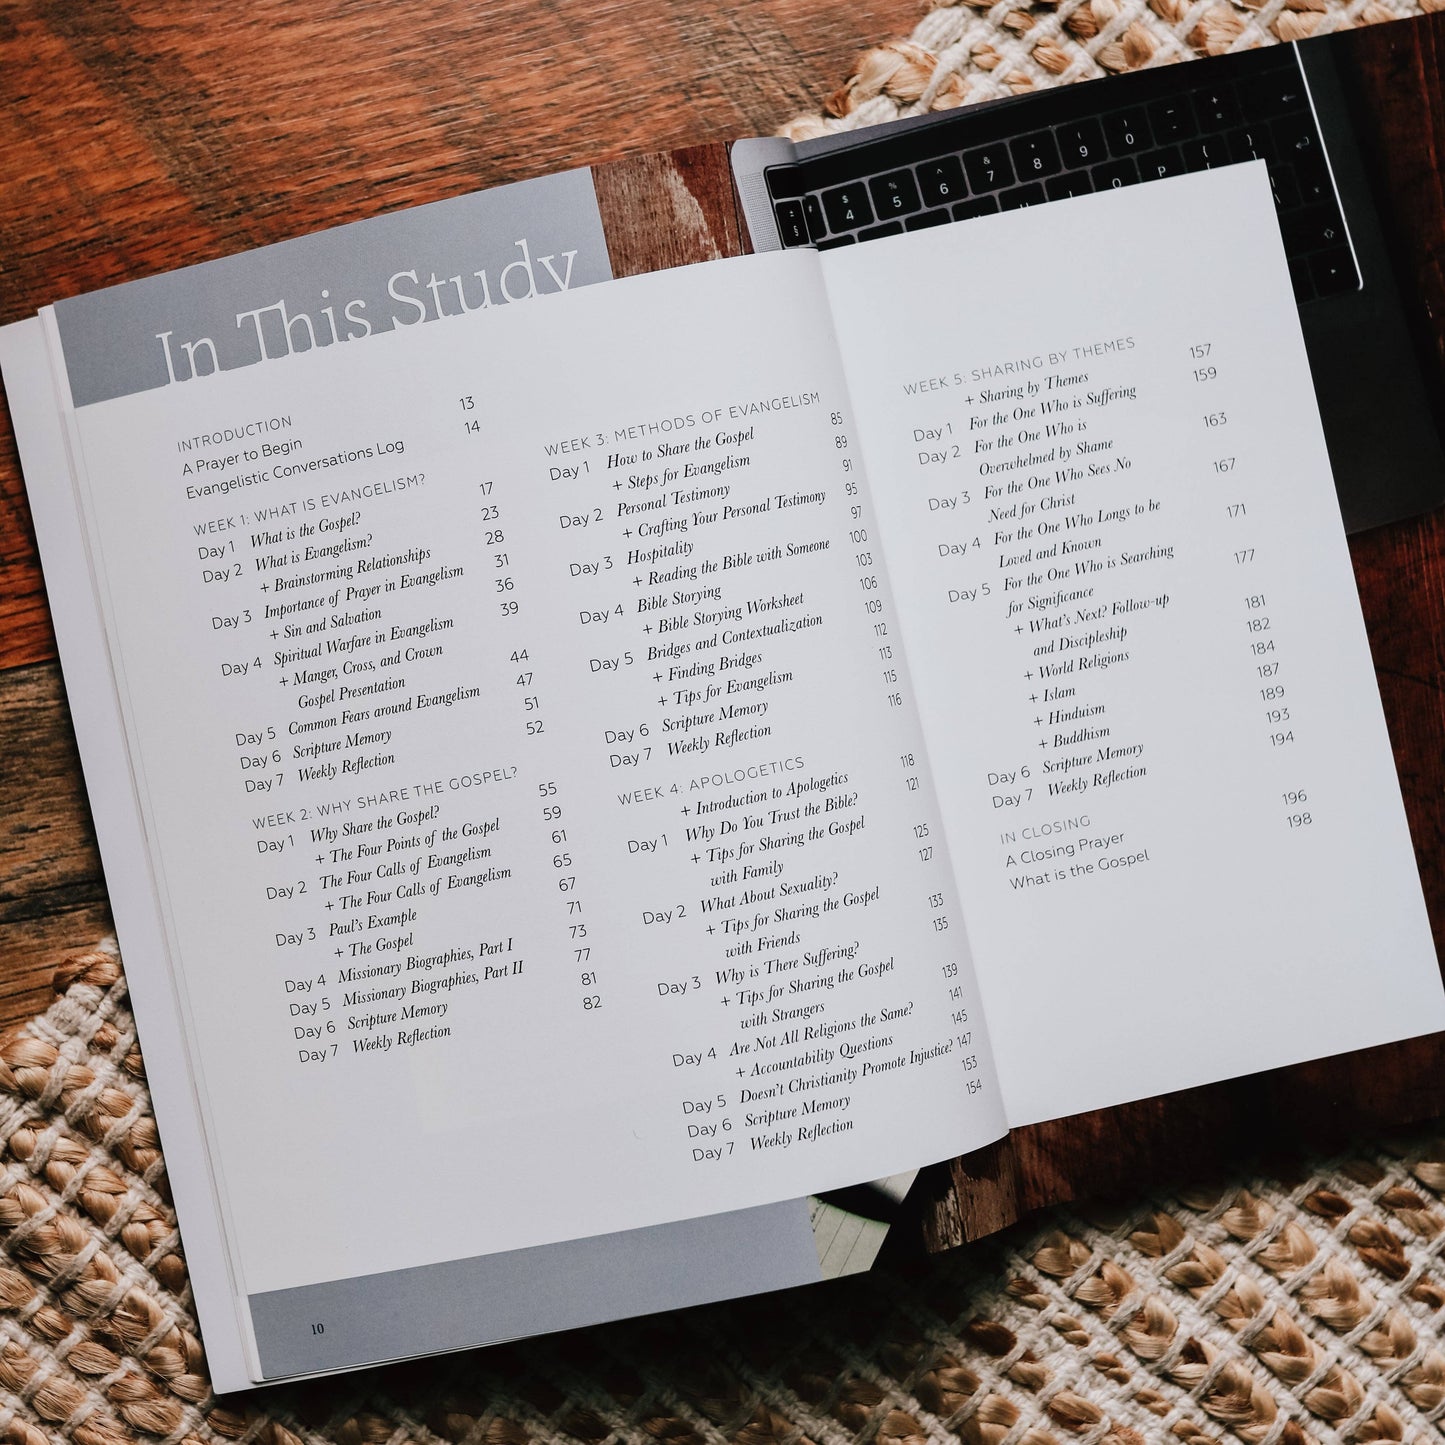 In This Study
INTRODUCTION
A Prayer to Begin 13
Evangelistic Conversations Log 14
WEEK 1: WHAT IS EVANGELISM?
Day 1 What is the Gospel? 17
Day 2 What is Evangelism? 23
+ Brainstorming Relationships 28
Day 3 Importance of Prayer in Evangelism 31
+ Sin and Salvation 36
Day 4 Spiritual Warfare in Evangelism 39
+ Manger, Cross, and Crown
Gospel Presentation 44
Day 5 Common Fears around Evangelism 47
Day 6 Scripture Memory 51
Day 7 Weekly Reflection 52
WEEK 2: WHY SHARE THE GOSPEL?
Day 1 Why Share the Gospel? 55
+ The Four Points of the Gospel 59
Day 2 The Four Calls of Evangelism 61
+ The Four Calls of Evangelism 65
Day 3 Paul's Example 67
+ The Gospel 71
Day 4 Missionary Biographies, Part I 73
Day 5 Missionary Biographies, Part II 77
Day 6 Scripture Memory 81
Day 7 Weekly Reflection 82
10
WEEK 3: METHODS OF EVANGELISM
Day 1 How to Share the Gospel 85
+ Steps for Evangelism 89
Day 2 Personal Testimony 91
+ Crafting Your Personal Testimony 95
Day 3 Hospitality 97
+ Reading the Bible with Someone 100
Day 4 Bible Storying 103
+ Bible Storying Worksheet 106
Day 5 Bridges and Contextualization 109
+ Finding Bridges 112
+ Tips for Evangelism 113
Day 6 Scripture Memory 115
Day 7 Weekly Reflection 116
WEEK 4: APOLOGETICS
+ Introduction to Apologetics 118
Day 1 Why Do You Trust the Bible? 121
+ Tips for Sharing the Gospel
with Family 125
Day 2 What About Sexuality? 127
+ Tips for Sharing the Gospel
with Friends 133
Day 3 Why is There Suffering? 135
+ Tips for Sharing the Gospel
with Strangers 139
Day 4 Are Not All Religions the Same? 141
+ Accountability Questions 145
Day 5 Doesn't Christianity Promote Injustice? 147
Day 6 Scripture Memory 153
Day 7 Weekly Reflection 154
WEEK 5: SHARING BY THEMES
+ Sharing by Themes 157
Day 1 For the One Who is Suffering 159
Day 2 For the One Who is
Overwhelmed by Shame 163
Day 3 For the One Who Sees No
Need for Christ 167
Day 4 For the One Who Longs to be
Loved and Known 171
Day 5 For the One Who is Searching
for Significance 177
+ What's Next? Follow-up
and Discipleship 181
+ World Religions 182
+ Islam 184
+ Hinduism 187
+ Buddhism 189
Day 6 Scripture Memory 193
Day 7 Weekly Reflection 194
IN CLOSING
A Closing Prayer 196
What is the Gospel 198
$ % ^ & * ( )
4 5 6 7 8 9 0
O P